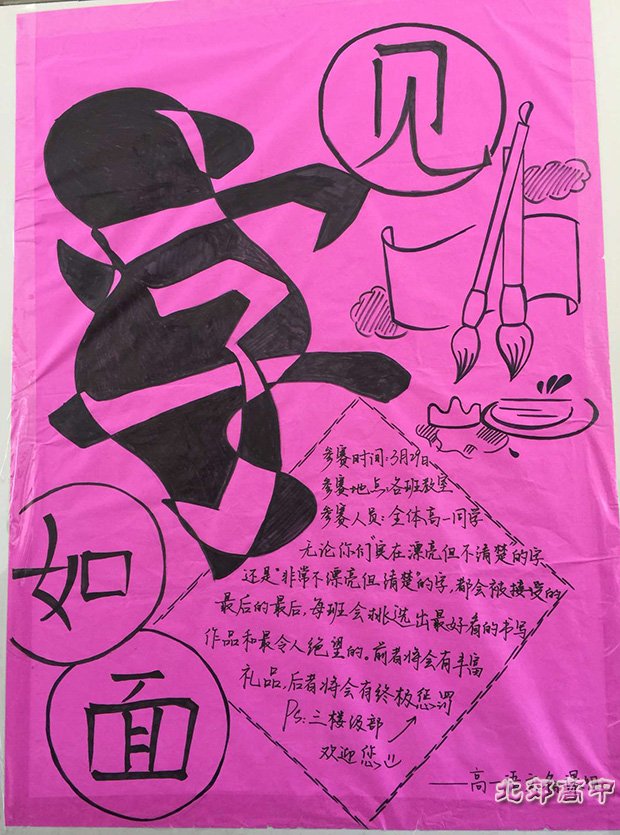 见
字
如
面
参赛时间:3月29日
参赛地点:各班教室
参赛人员:全体高一同学
无论你们"实在漂亮但不清楚"的字
还是"非常不漂亮但清楚"的字,都会被接受的
最后的最后,每班会挑选出最好看的书写
作品和最令人绝望的。前者将会有丰富
礼品,后者将会有终极惩罚
Ps:三楼级部
欢迎您
——高一语文
北郊高中